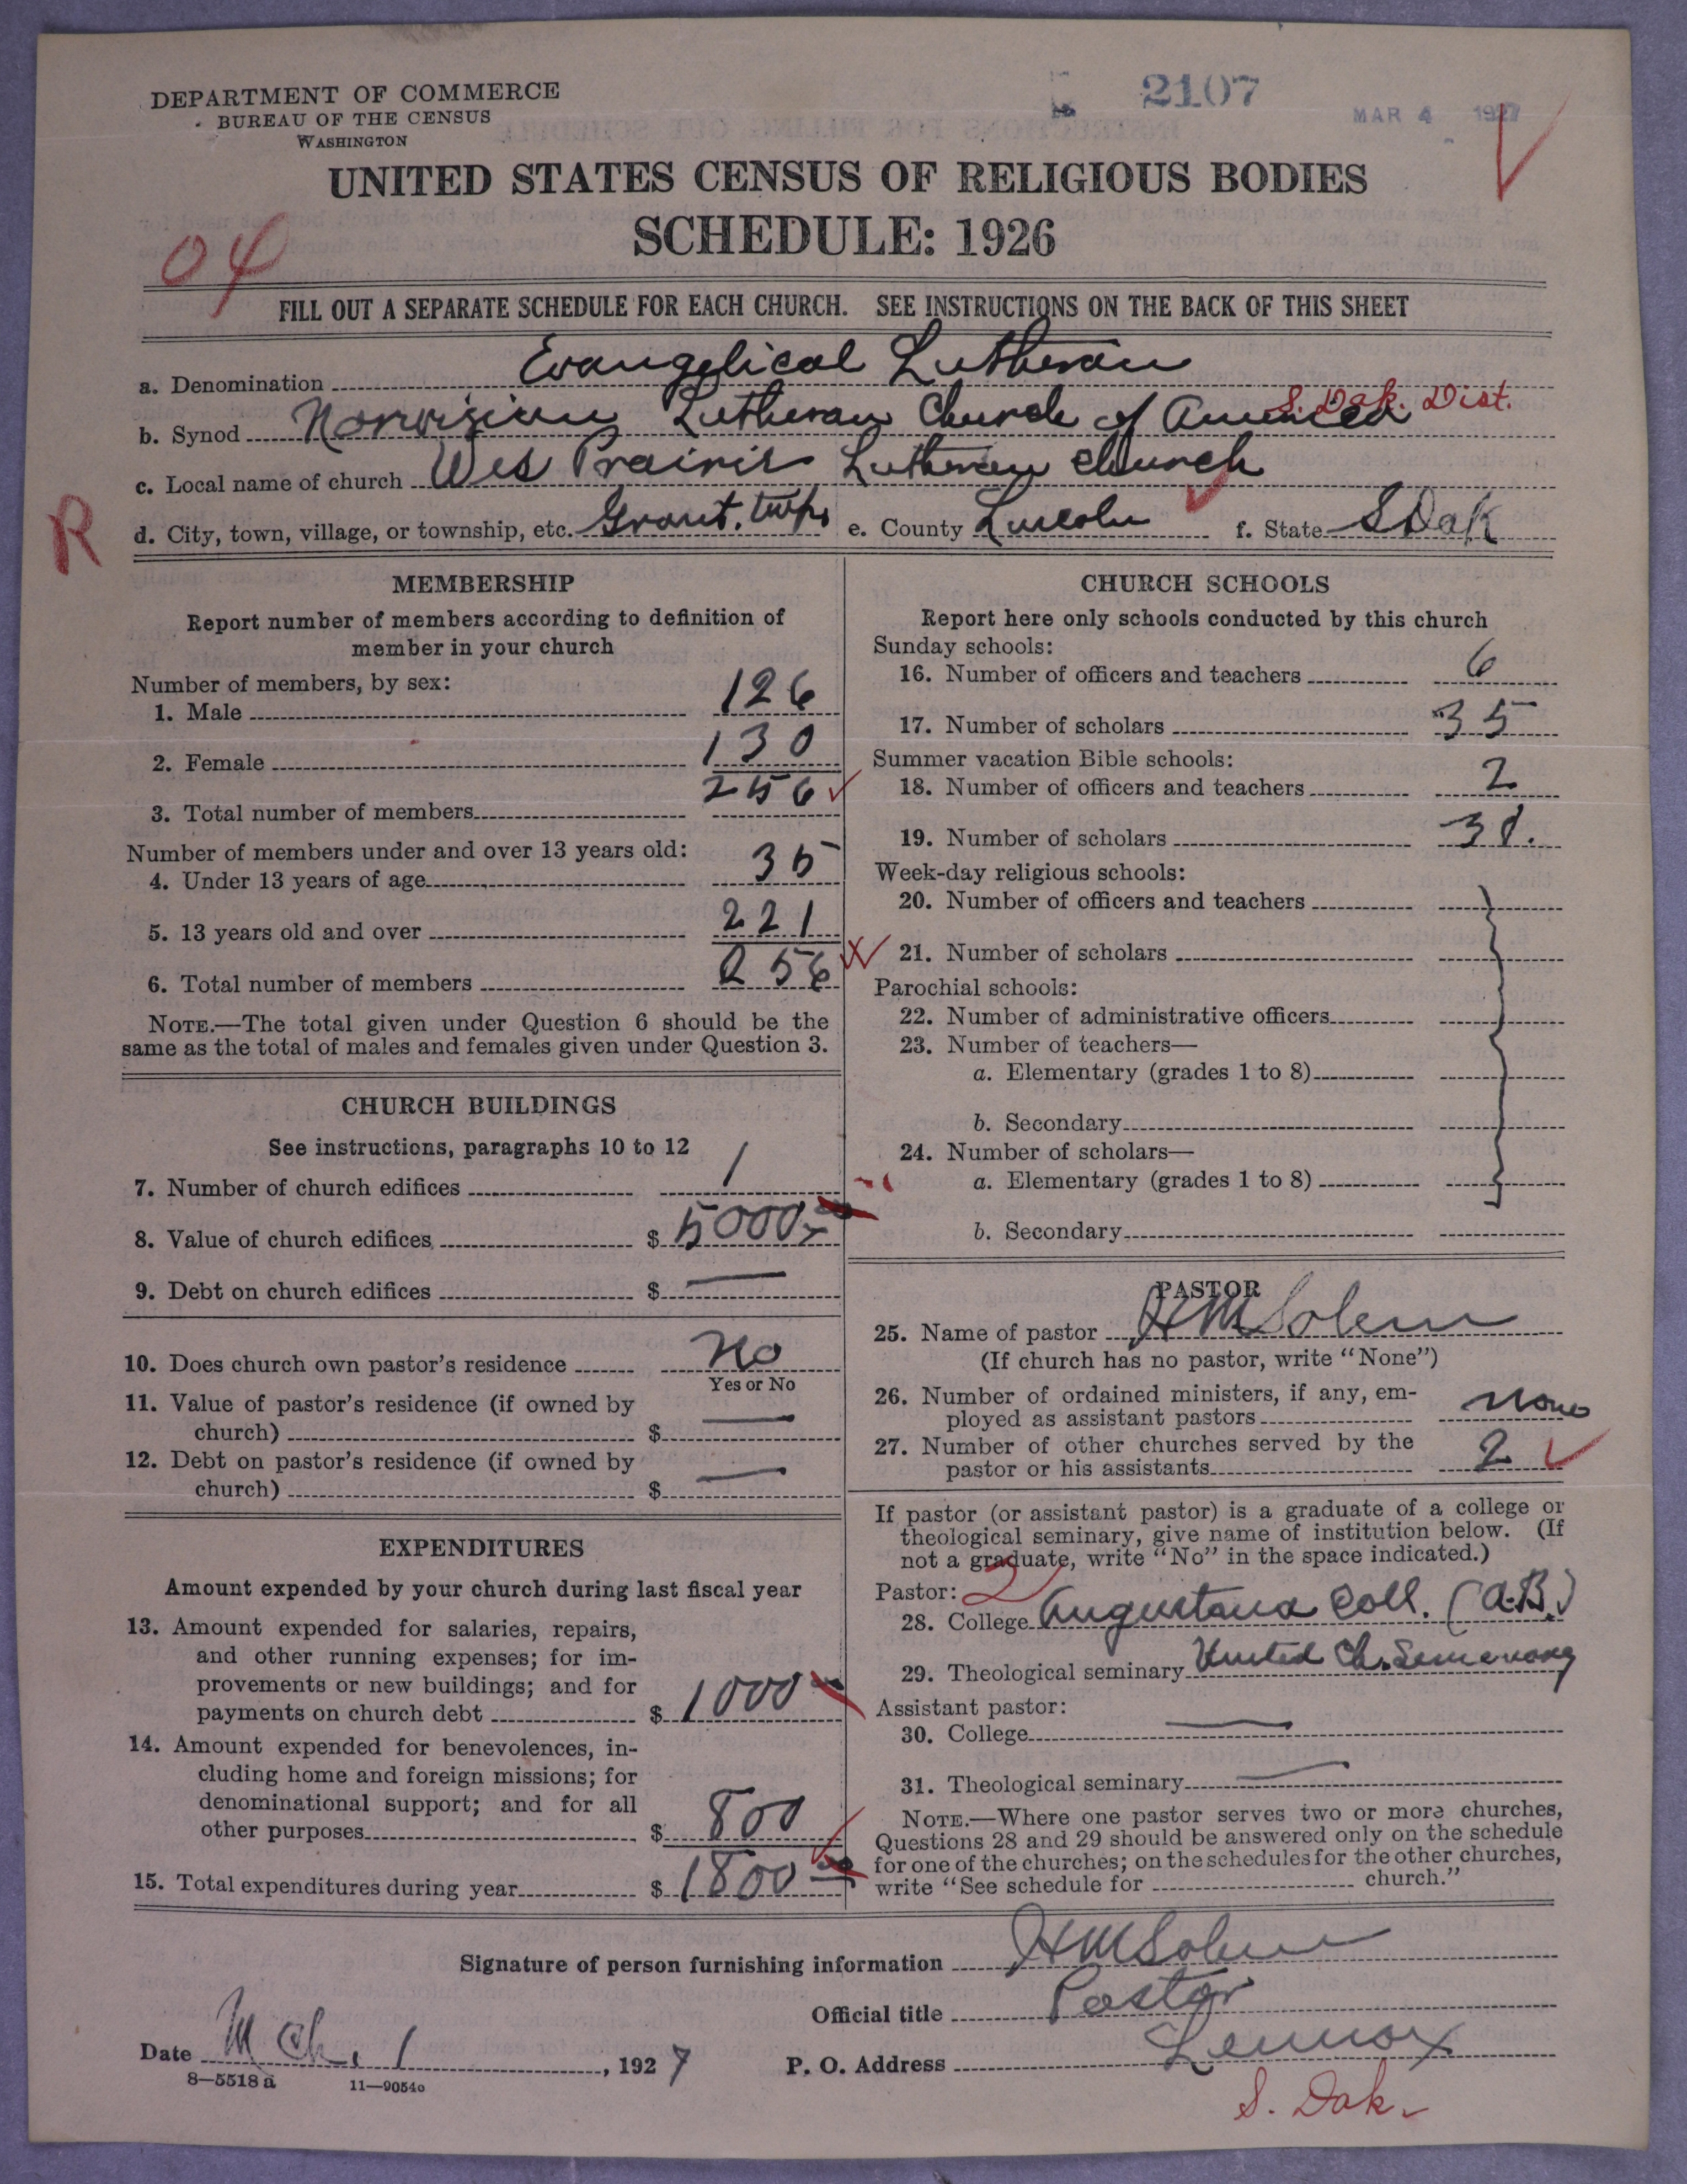 DEPARTMENT OF COMMERCE
BUREAU OF THE CENSUS
WASHINGTON
2107
MAR 4 1927
UNITED STATES CENSUS OF RELIGIOUS BODIES
SCHEDULE: 1926
04
FILL OUT A SEPARATE SCHEDULE FOR EACH CHURCH. SEE INSTRUCTIONS ON THE BACK OF THIS SHEET
a. Denomination Evangelical Lutheran
b. Synod Norwigian Lutheran Church of America S. Dak. Dist.
c. Local name of church Wes Prairie Lutheran Church
R
d. City, town, village, or township, etc. Grant. twp. e. County Lincoln f. State S Dak
MEMBERSHIP
Report number of members according to definition of
member in your church
Number of members, by sex:
1. Male 126
2. Female 130
3. Total number of members 256
Number of members under and over 13 years old:
4. Under 13 years of age 35
5. 13 years old and over 221
6. Total number of members 256
NOTE.—The total given under Question 6 should be the
same as the total of males and females given under Question 3.
CHURCH BUILDINGS
See instructions, paragraphs 10 to 12
7. Number of church edifices 1
8. Value of church edifices $ 5000
9. Debt on church edifices $ —
10. Does church own pastor's residence No
Yes or No
11. Value of pastor's residence (if owned by
church) $ —
12. Debt on pastor's residence (if owned by
church) $ —
EXPENDITURES
Amount expended by your church during last fiscal year
13. Amount expended for salaries, repairs,
and other running expenses; for im-
provements or new buildings; and for
payments on church debt $ 1000
14. Amount expended for benevolences, in-
cluding home and foreign missions; for
denominational support; and for all
other purposes $ 800
15. Total expenditures during year $ 1800
CHURCH SCHOOLS
Report here only schools conducted by this church
Sunday schools:
16. Number of officers and teachers 6
17. Number of scholars 35
Summer vacation Bible schools:
18. Number of officers and teachers 2
19. Number of scholars
Week-day religious schools:
20. Number of officers and teachers
21. Number of scholars
Parochial schools:
22. Number of administrative officers
23. Number of teachers—
a. Elementary (grades 1 to 8)
b. Secondary
24. Number of scholars—
a. Elementary (grades 1 to 8)
b. Secondary
PASTOR
25. Name of pastor H M Solem
(If church has no pastor, write "None")
26. Number of ordained ministers, if any, em-
ployed as assistant pastors none
27. Number of other churches served by the
pastor or his assistants 2
If pastor (or assistant pastor) is a graduate of a college or
theological seminary, give name of institution below. (If
not a graduate, write "No" in the space indicated.)
Pastor: 2
28. College Augustana Coll. (A.B.)
29. Theological seminary United Ch. Semenary
Assistant pastor:
30. College —
31. Theological seminary —
NOTE.—Where one pastor serves two or more churches,
Questions 28 and 29 should be answered only on the schedule
for one of the churches; on the schedules for the other churches,
write "See schedule for church."
Signature of person furnishing information H M Solem
Official title Pastor
Date Mch. 1, 1927 P. O. Address Lennox
8—5518 a 11—9054o
S. Dak.